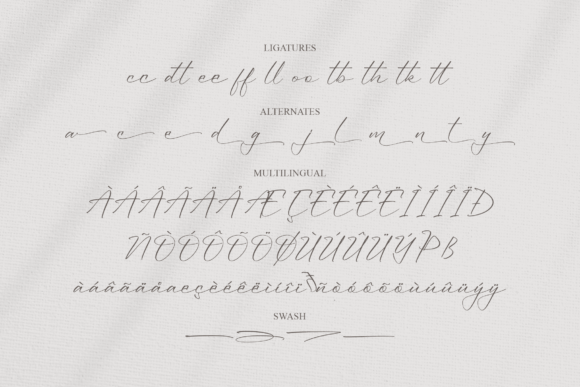 LIGATURES
cc dt ee ff ll oo tb th tk tt
ALTERNATES
a c e d g j l m n t y
MULTILINGUAL
ÀÁÂÃÄÅÆÇÈÉÊËÌÍÎÏÐ
ÑÒÓÔÕÖØÙÚÛÜÝÞß
àáâãäåæçèéêëìíîï
ñòóôõöùúûüýÿ
SWASH